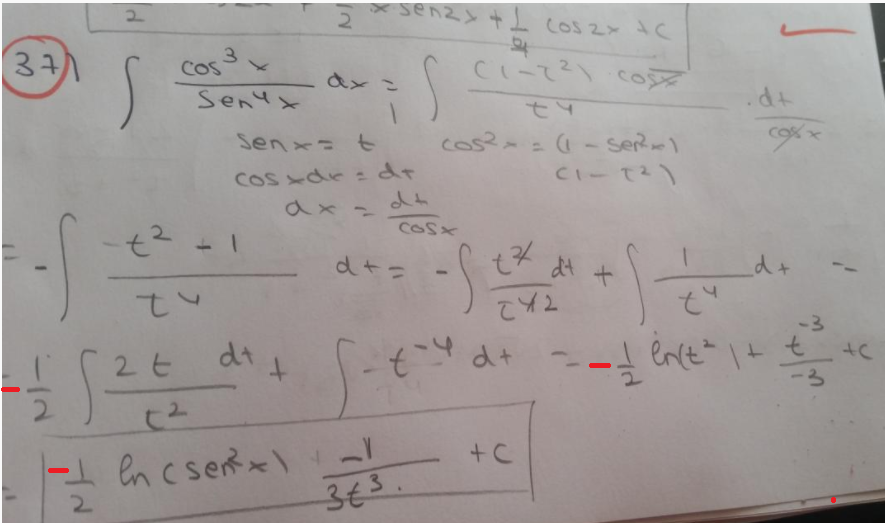 2 2 x sen2x + 1/4 cos 2x + C
37) ∫ cos³x / sen⁴x dx = ∫ (1-t²) cosx / t⁴ . dt / cosx
senx = t cos²x = (1 - sen²x)
cosxdx = dt (1 - t²)
dx = dt / cosx
= - ∫ t² - 1 / t⁴ dt = - ∫ t² / t⁴2 dt + ∫ 1 / t⁴ dt =
= - 1/2 ∫ 2t / t² dt + ∫ - t⁻⁴ dt = - 1/2 ln(t²) + t⁻³ / -3 + C
= - 1/2 ln(sen²x) -1 / 3t³. + C